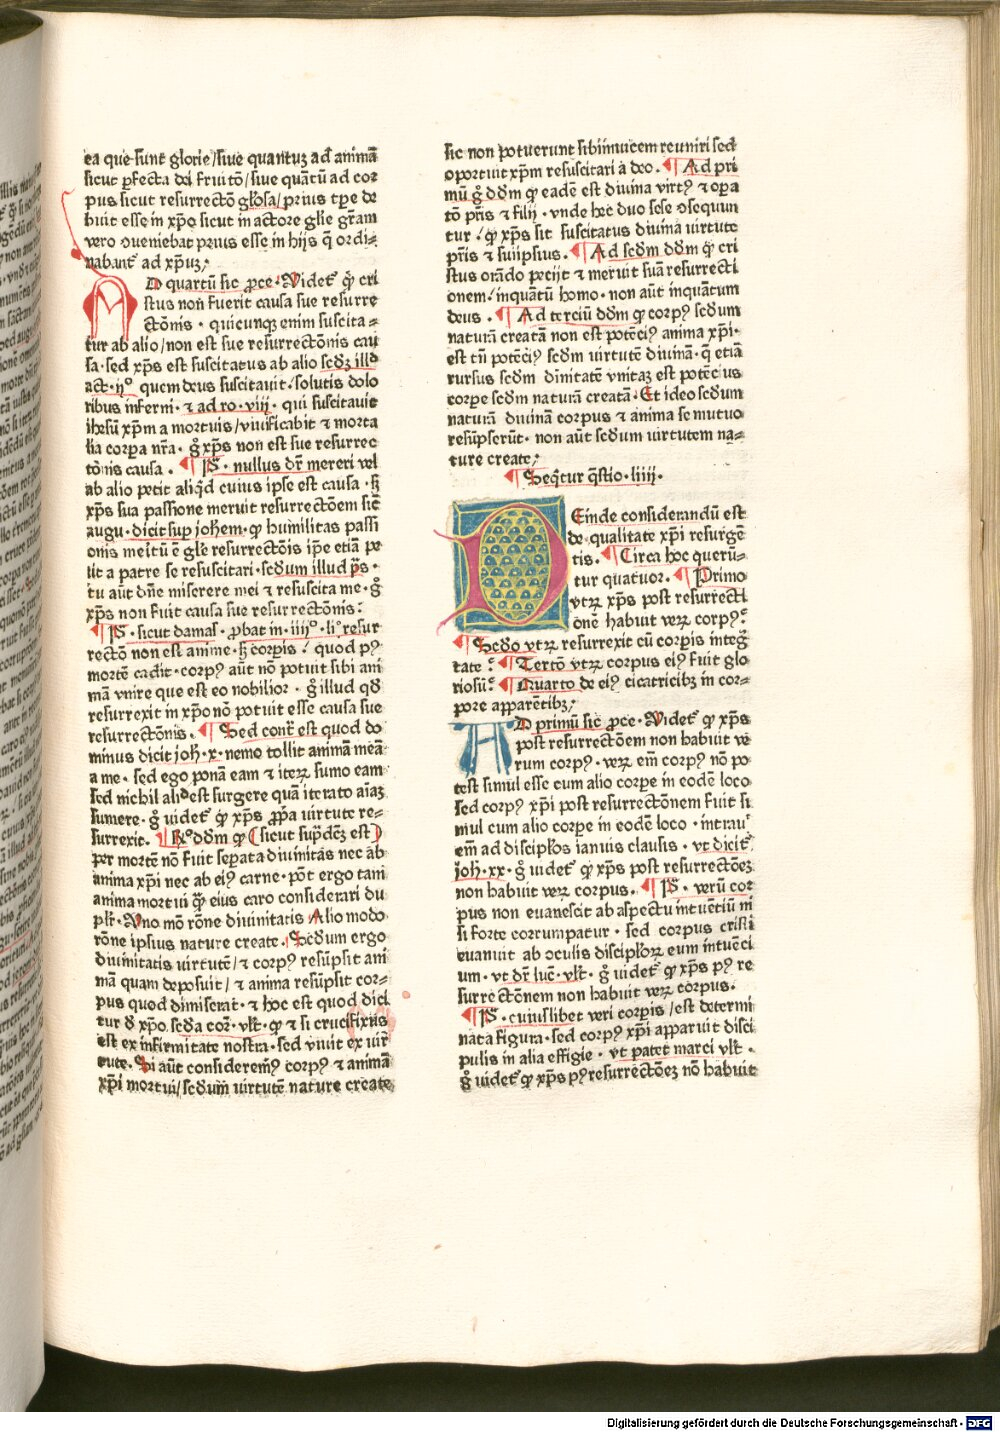 ea que sunt glorie/siue quantuʒ ad animā
sicut ꝑfecta dei fruitō/siue quātū ad cor
pus sicut resurrectō głosa/prius tꝑe de
buit esse in xp̄o sicut in actore glīe gr̄am
vero ↄueniebat prius esse in hijs q̄ ordi-
nabānt ad xpūʒ;
D quartū sic ꝓce · Videt᷑ ꝙ cri
stus non fuerit causa sue resurre
ctōnis · quicunqʒ enim suscita =
tur ab alio/non est sue resurrectōnis cau
sa · sed xp̄s est suscitatus ab alio scdʒ illd
act · ijº quem deus suscitauit/solutis dolo
ribus inferni · ⁊ ad ro · viij · qui suscitauit
ihesū xp̄m a mortuis/viuificabit ⁊ morta
lia corpa nr̄a · ḡ xp̄s non est sue resurrec
tōnis causa . ¶ P̄ꝰ · nullus dr̄ mereri vel
ab alio petit aliq̄d cuius ipse est causa · sꝫ
xp̄s sua passione meruit resurrectōem sic̄
augu · dicit suꝑ joħem · ꝙ humilitas passi
onis meītū ē glīe resurrectōis ip̄e etiā pe
tit a patre se resuscitari · scdum illud p̄s ·
tu aūt dn̄e miserere mei ⁊ resuscita me · ḡ
xp̄s non fuit causa sue resurrectōnis:
¶ P̄ꝰ · sicut damas̄ · ꝓbat in · iiijº · liº resur
rectō non est anime · sꝫ corꝑis : quod pꝰ
mortē cadit · corpꝰ aūt nō potuit sibi ani
mā vnire que est eo nobilior · ḡ illud qd̄
resurrexit in xp̄o nō potuit esse causa sue
resurrectōnis . ¶ Sed cont̄ est quod do
minus dicit joħ · x · nemo tollit animā meā
a me · sed ego ponā eam ⁊ iteꝝ sumo eam
sed nichil aliᵈest surgere quā iterato aīaʒ
sumere · ḡ videt᷑ ꝙ xp̄s ꝓpa virtute re=
surrexit. ¶ Rº dd̄m ꝙ (sicut sup̄dc̄ʒ est)
per mortē nō fuit seꝑata diuinitas nec ab
anima xp̄i nec ab eiꝰ carne · pōt ergo tam
anima mortui q̄ꝫ eius caro considerari du
plr̄ · Vno mō rōne diuinitatis Alio modo
rōne ipsius nature create · Scdum ergo
diuinitatis virtutē/⁊ corpꝰ resūpsit ani
mā quam deposuit/⁊ anima resūpsit cor=
pus quod dimiserat · ⁊ hoc est quod dici
tur đ xp̄o scda coꝝ · vlt̄ · ꝙ ⁊ si crucifixus
est ex infirmitate nostra · sed viuit ex vir̄
tute · Si aūt consideremꝰ corpꝰ ⁊ animā
xp̄i mortui/scdum̄ virtutē nature create
sic non potuerunt sibiinuicem reuniri sed
oportuit xp̄m resuscitari a deo . ¶ Ad pri
mū ḡ dd̄m ꝙ eadē est diuina virtꝰ ⁊ oꝑa
tō pr̄is ⁊ filij · vnde hec duo sese ↄsequun
tur / ꝙ xp̄s sit suscitatus diuina virtute
pr̄is ⁊ suiipsius . ¶ Ad scdm dd̄m ꝙ cri
stus orādo petijt ⁊ meruit suā resurrecti
onem/inquātū homo · non aūt inquātum
deus . ¶ Ad terciū dd̄m ꝙ corpꝰ scdum
naturā creatā non est potēciꝰ anima xp̄i ·
est tn̄ potēciꝰ scdm virtutē diuinā · q̄ etiā
rursus scdm diuinitatē vnitaʒ est potēcius
corpe scdm naturā creatā · Et ideo scdum
naturā diuinā corpus ⁊ anima se mutuo
resūpserūt · non aūt scdum virtutem na=
ture create;
¶ Seq̄tur q̄stio · liiij ·
Einde considerandū est
de qualitate xp̄i resurgē
tis . ¶ Circa hoc querū=
tur quatuor . ¶ Primo
vtꝝ xp̄s post resurrecti
onē habuit veꝝ corpꝰ:
¶ Scdo vtꝝ resurrexit cū corꝑis integ̃
tate : ¶ Tertō vtꝝ corpus eiꝰ fuit glo
riosū : ¶ Quarto de eiꝰ cicatricibʒ in cor=
pore apparētibʒ;
D primū sic ꝓce · Videt᷑ ꝙ xp̄s
post resurrectōem non habuit ve
rum corpꝰ · veꝝ em̄ corpꝰ nō po
test simul esse cum alio corpe in eodē loco
sed corpꝰ xp̄i post resurrectōnem fuit si
mul cum alio corpe in eodē loco · intrauᷓ
em̄ ad discipłos ianuis clausis · vt dicit᷑
joħ · xx · ḡ videt᷑ ꝙ xp̄s post resurrectōeʒ
non habuit veꝝ corpus . ¶ P̄ꝰ · verū cor
pus non euanescit ab aspectu intuētiū ni
si forte corrumpatur · sed corpus cristi
euanuit ab oculis discipłoꝝ eum intuēci
um · vt dr̄ luc̄ · vlt̄ · ḡ videt᷑ ꝙ xp̄s pꝰ re
surrectōnem non habuit veꝝ corpus ·
¶ P̄ꝰ · cuiuslibet veri corꝑis/est determi
nata figura · sed corpꝰ xp̄i apparuit disci
pulis in alia effigie · vt patet marci vlt̄ ·
ḡ videt᷑ ꝙ xp̄s pꝰ resurrectōeʒ nō habuit
Digitalisierung gefördert durch die Deutsche Forschungsgemeinschaft - DFG